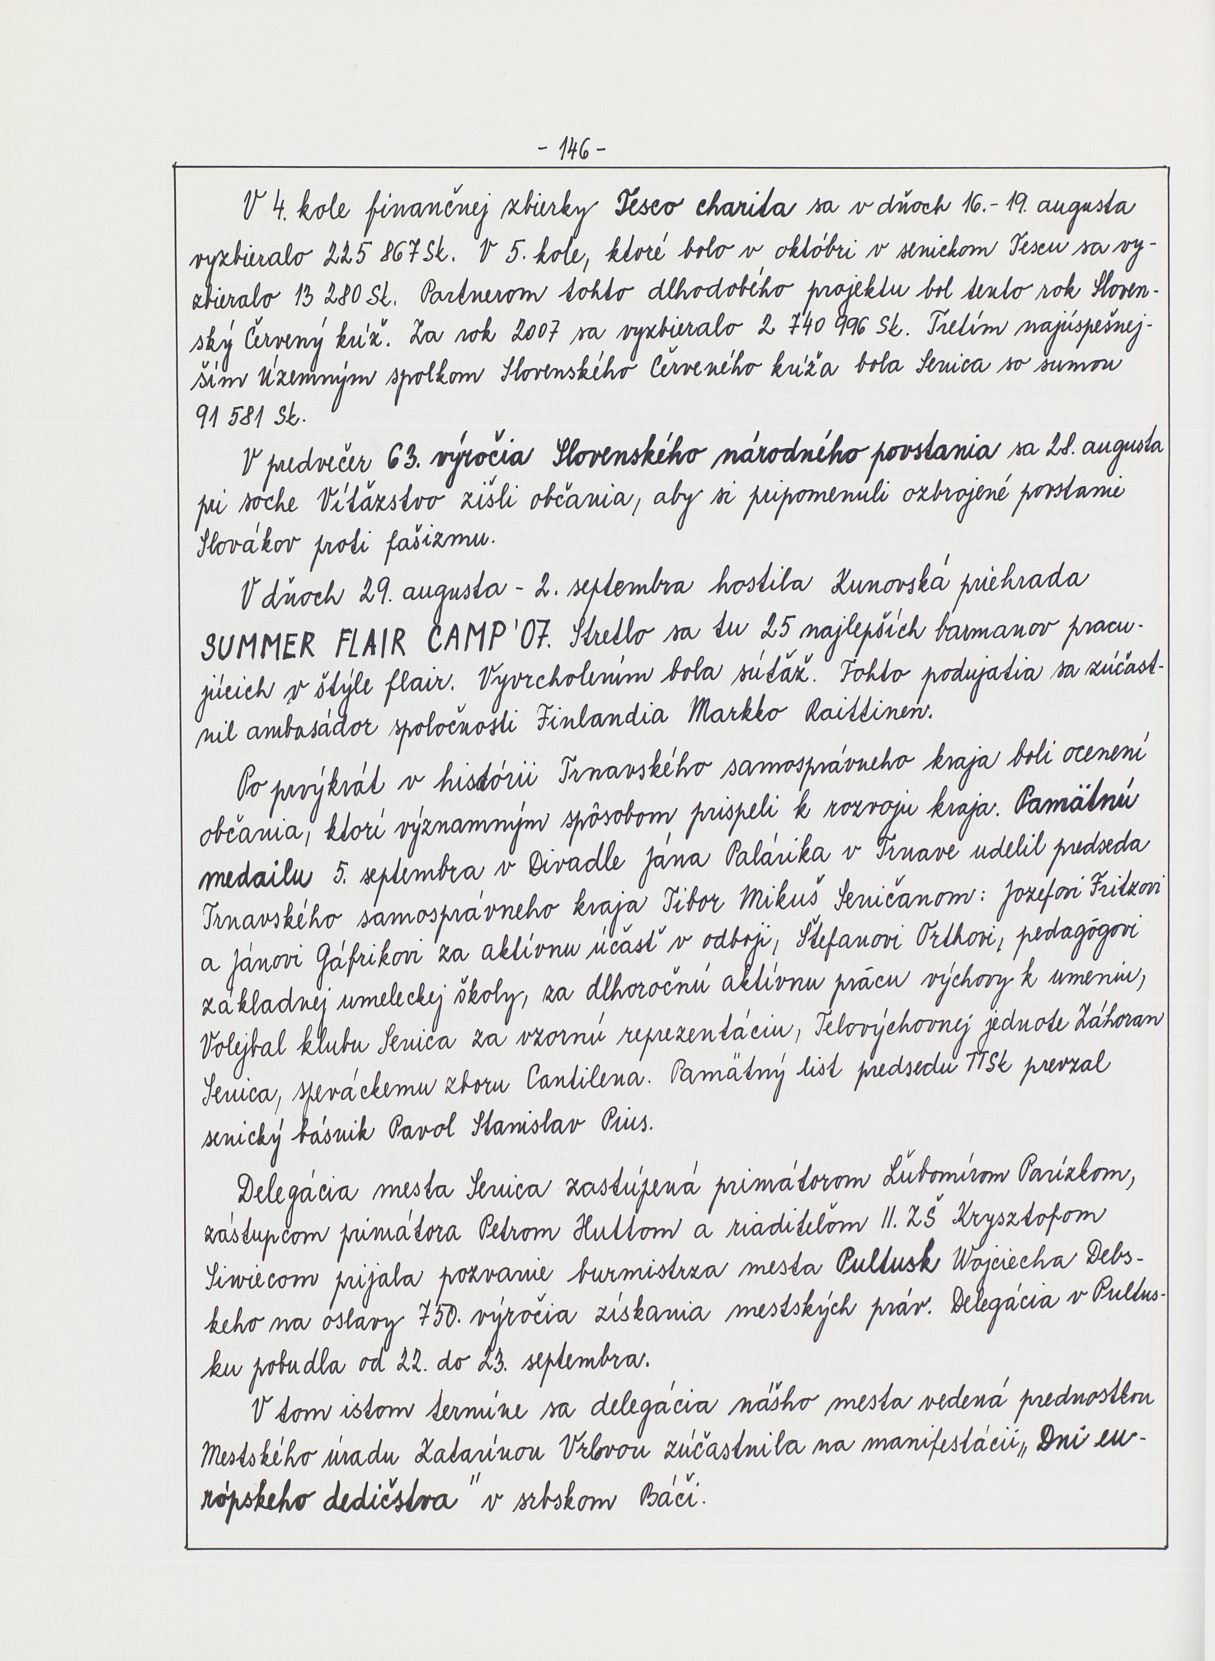 - 146 -
V 4. kole finančnej zbierky Tesco charita sa v dňoch 16.- 19. augusta
vyzbieralo 225 867 Sk. V 5. kole, ktoré bolo v októbri v senickom Tescu sa vy-
zbieralo 13 280 Sk. Partnerom tohto dlhodobého projektu bol tento rok Sloven-
ský Červený kríž. Za rok 2007 sa vyzbieralo 2 740 996 Sk. Tretím najúspešnej-
ším Územným spolkom Slovenského Červeného kríža bola Senica so sumou
91 581 Sk.
V predvečer 63. výročia Slovenského národného povstania sa 28. augusta
pri soche Víťazstvo zišli občania, aby si pripomenuli ozbrojené povstanie
Slovákov proti fašizmu.
V dňoch 29. augusta - 2. septembra hostila Kunovská priehrada
SUMMER FLAIR CAMP '07. Stretlo sa tu 25 najlepších barmanov pracu-
júcich v štýle flair. Vyvrcholením bola súťaž. Tohto podujatia sa zúčast-
nil ambasádor spoločnosti Finlandia Markko Raittinen.
Po prvýkrát v histórii Trnavského samosprávneho kraja boli ocenení
občania, ktorí významným spôsobom prispeli k rozvoju kraja. Pamätnú
medailu 5. septembra v Divadle Jána Palárika v Trnave udelil predseda
Trnavského samosprávneho kraja Tibor Mikuš Seničanom: Jozefovi Fritzovi
a Jánovi Gáfrikovi za aktívnu účasť v odboji, Štefanovi Orthovi, pedagógovi
základnej umeleckej školy, za dlhoročnú aktívnu prácu výchovy k umeniu,
Volejbal klubu Senica za vzornú reprezentáciu, Telovýchovnej jednote Záhoran
Senica, speváckemu zboru Cantilena. Pamätný list predsedu TTSK prevzal
senický básnik Pavol Stanislav Pius.
Delegácia mesta Senica zastúpená primátorom Ľubomírom Parízkom,
zástupcom primátora Petrom Huttom a riaditeľom II. ZŠ Krysztofom
Siwiecom prijala pozvanie burmistrza mesta Pultusk Wojciecha Debs-
keho na oslavy 750. výročia získania mestských práv. Delegácia v Pultus-
ku pobudla od 22. do 23. septembra.
V tom istom termíne sa delegácia nášho mesta vedená prednostkou
Mestského úradu Katarínou Vrlovou zúčastnila na manifestácii „Dni eu-
rópskeho dedičstva" v srbskom Báči.